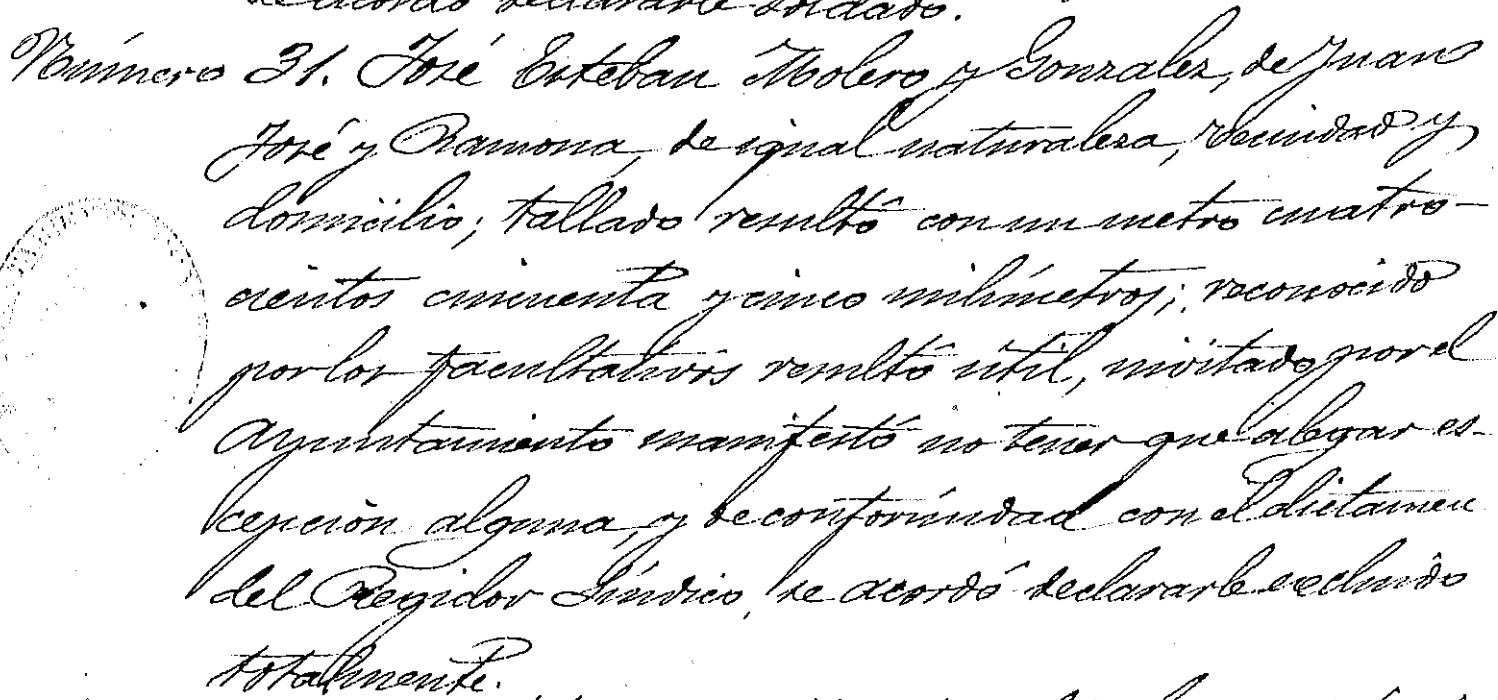 se acordó declararle soldado.
Número 31. José Esteban Molero y Gonzalez, de Juan
José y Ramona, de igual naturaleza, vecindad y
domicilio; tallado resultó con un metro cuatro-
cientos cincuenta y cinco milímetros; reconocido
por los facultativos resultó útil, invitado por el
Ayuntamiento manifestó no tener que alegar es-
cepción alguna, y de conformidad con el dictamen
del Regidor Síndico, se acordó declararle excluido
totalmente.